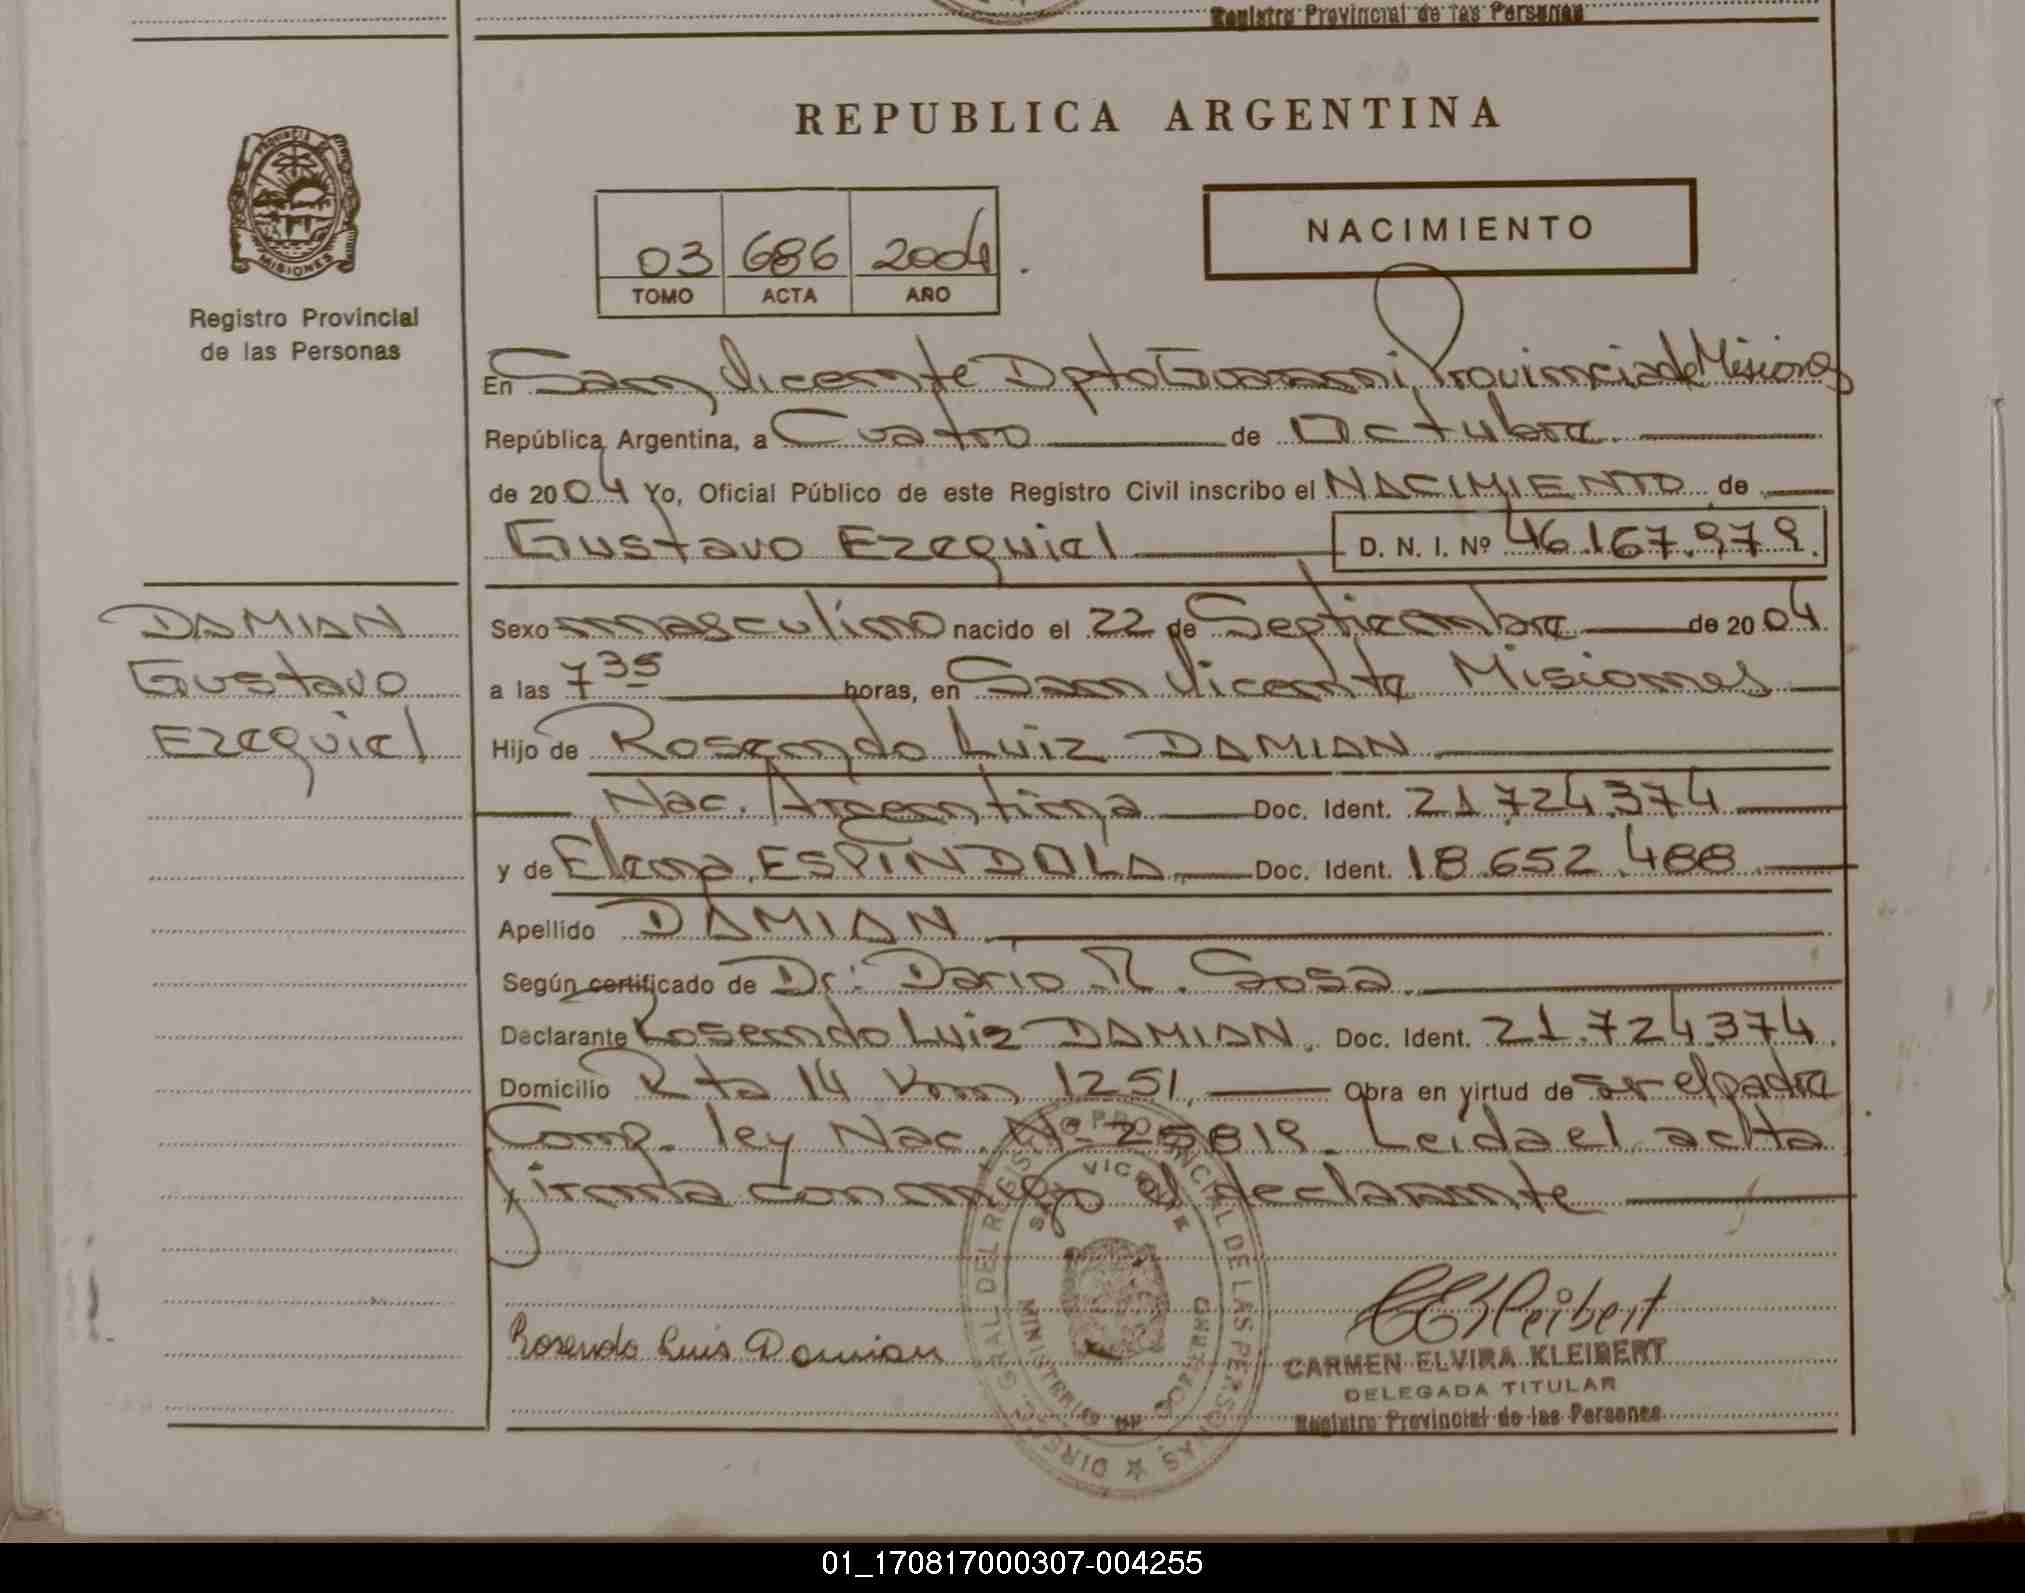 Registro Provincial de las Personas
REPUBLICA ARGENTINA
PROVINCIA DE
MISIONES
Registro Provincial
de las Personas
03 686 2004
TOMO ACTA AÑO
NACIMIENTO
En San Vicente Dpto Guarani Provincia de Misiones
República Argentina, a Cuatro de Octubre
de 2004 Yo, Oficial Público de este Registro Civil inscribo el NACIMIENTO de
Gustavo Ezequiel D. N. I. Nº 46.167.979.
DAMIAN
Gustavo
Ezequiel
Sexo masculino nacido el 22 de Septiembre de 2004
a las 7 35 horas, en San Vicente Misiones
Hijo de Rosendo Luiz DAMIAN
Nac. Argentina Doc. Ident. 21.724.374
y de Elena ESPINDOLA Doc. Ident. 18.652.488
Apellido DAMIAN
Según certificado de Dr. Dario R. Sosa
Declarante Rosendo Luiz DAMIAN. Doc. Ident. 21.724.374.
Domicilio Rta 14 Km 1251, Obra en virtud de ser el padre
Comp. ley Nac. Nº 25819. Leida el acta
firma conmigo el declarante
DIREC. GRAL. DEL REGISTRO PROVINCIAL DE LAS PERSONAS
SAN VICENTE
MINISTERIO DE GOBIERNO
Rosendo Luis Damian
CEKleibert
CARMEN ELVIRA KLEIBERT
DELEGADA TITULAR
Registro Provincial de las Personas
01_170817000307-004255